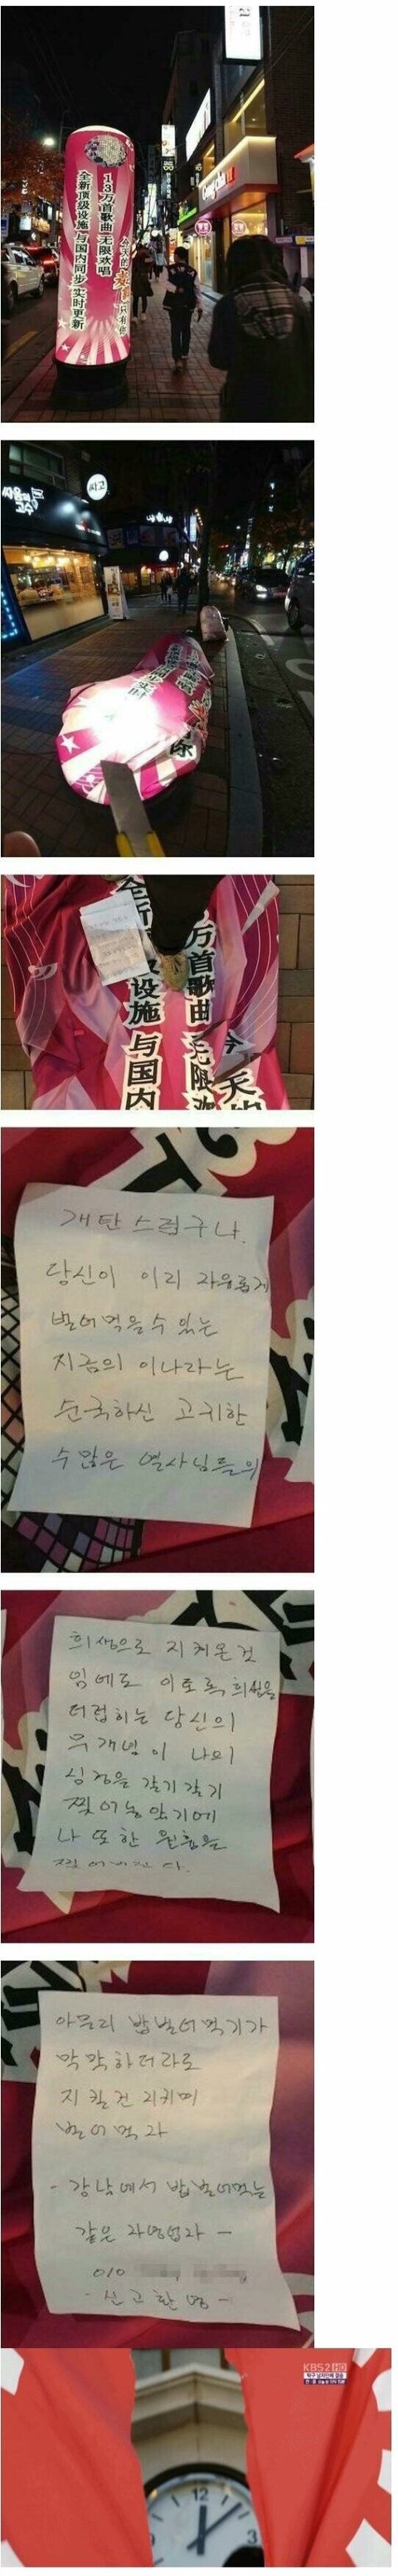 13万首歌曲 无限欢唱
全新顶级设施 与国内同步 实时更新
싸움의
고수
싸고
万首歌曲 无限欢
设施 与国内
개탄스럽구나.
당신이 이리 자유롭게
벌어먹을수 있는
지금의 이나라는
순국하신 고귀한
수많은 열사님들의
희생으로 지켜온것
임에도 이토록 희생을
더럽히는 당신의
무개념이 나의
심정을 갈기갈기
찢어놓았기에
나 또한 원흉을
찢어버린다.
아무리 밥벌어먹기가
막막하더라도
지킬건 지키며
벌어먹자
- 강남에서 밥벌어먹는
같은 자영업자 -
010
- 신고환영 -
KBS2 HD
12
3